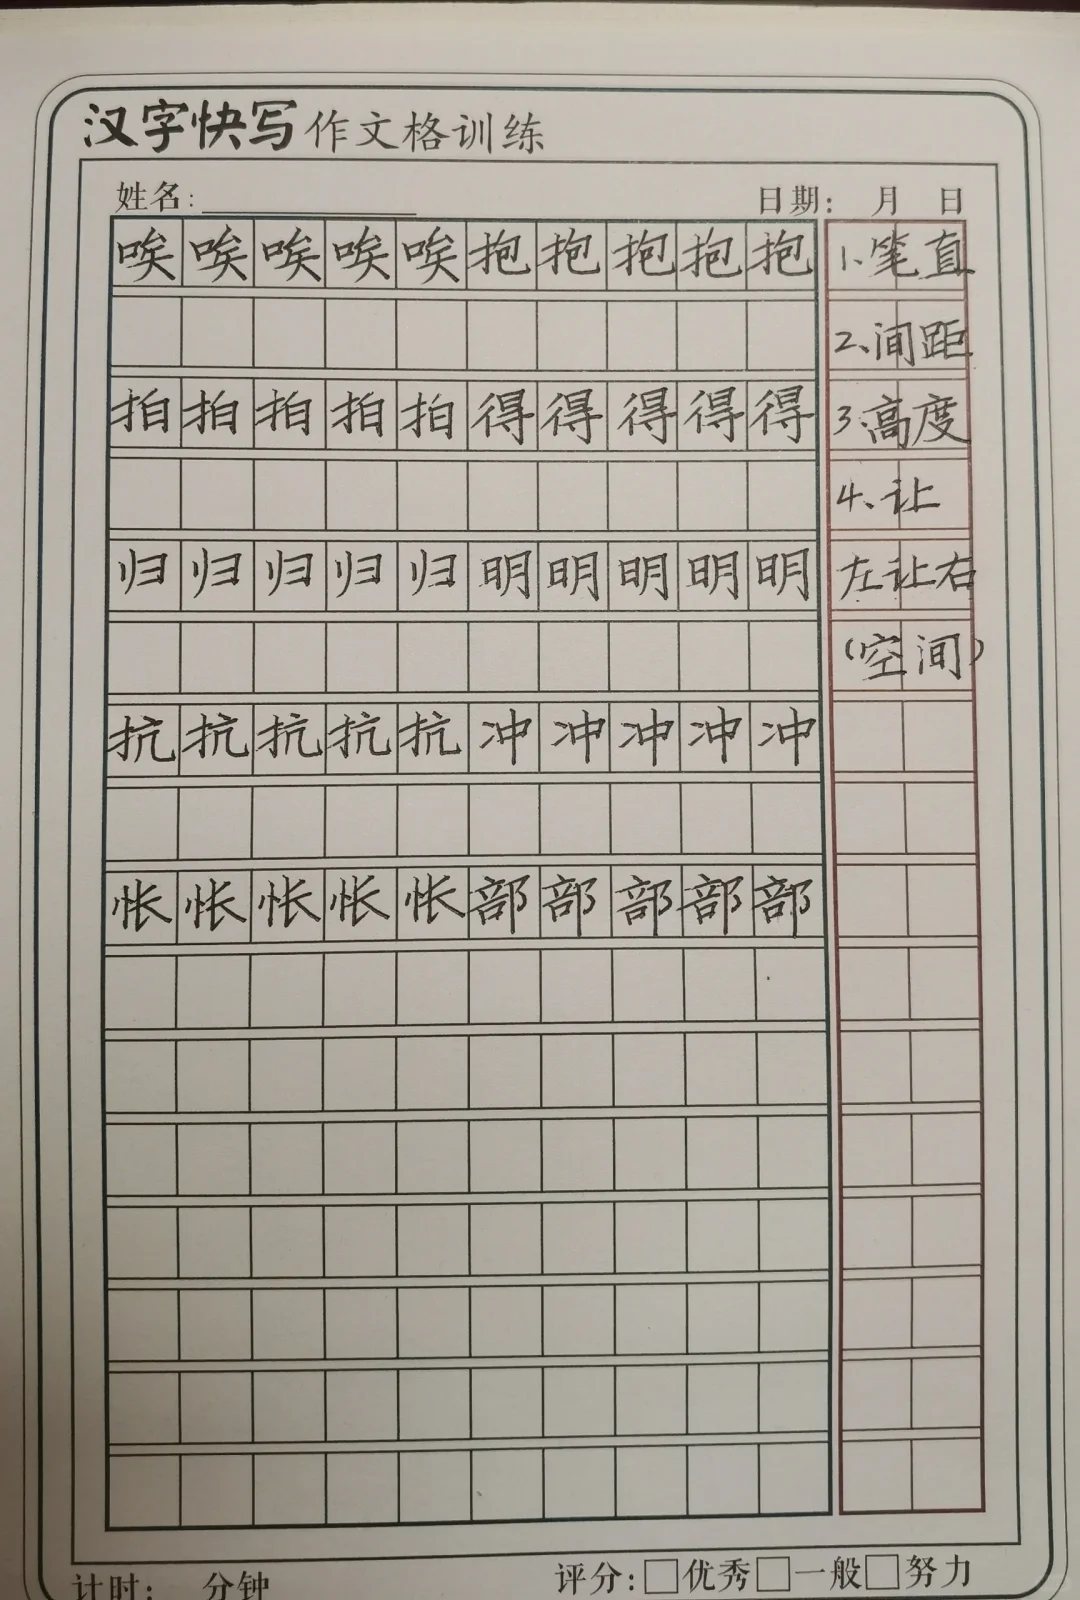 汉字快写作文格训练
姓名: 日期: 月 日
唉唉唉唉唉抱抱抱抱抱 1、笔直
2、间距
拍拍拍拍拍得得得得得 3、高度
4、让
归归归归归明明明明明 左让右
(空间)
抗抗抗抗抗冲冲冲冲冲
怅怅怅怅怅部部部部部
计时: 分钟 评分: □优秀□一般□努力